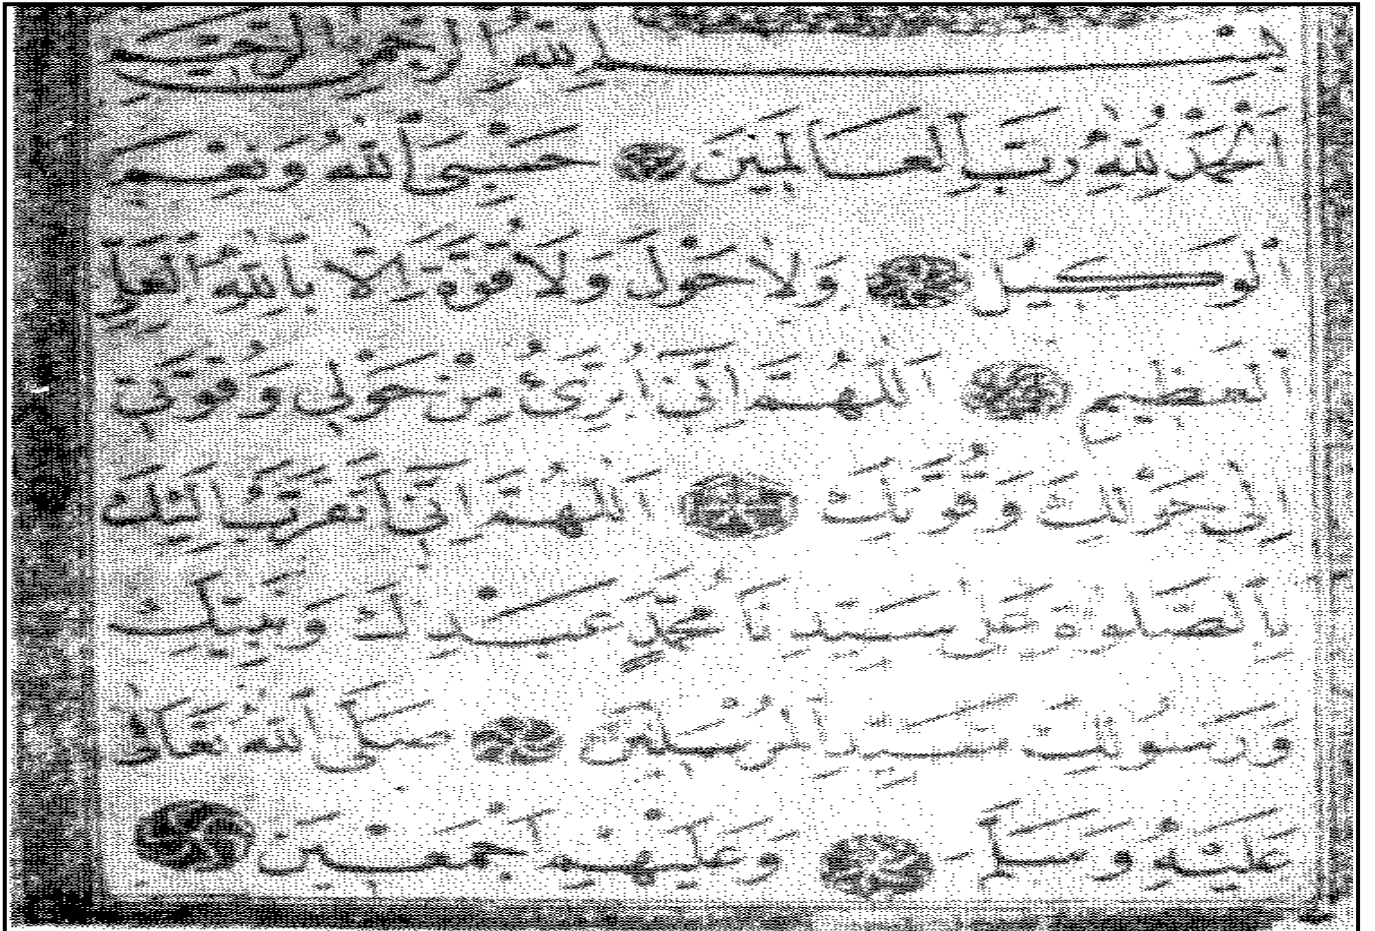 بِسْمِ اللهِ الرَّحْمٰنِ الرَّحِيْمِ
اَلْحَمْدُ لِلّٰهِ رَبِّ الْعَالَمِيْنَ حَسْبِيَ اللهُ وَنِعْمَ
الْوَكِيْلُ وَلَا حَوْلَ وَلَا قُوَّةَ اِلَّا بِاللهِ الْعَلِيِّ
الْعَظِيْمِ اَللّٰهُمَّ اِنِّيْ اُبْرِئُ مِنْ حَوْلِيْ وَقُوَّتِيْ
اِلٰى حَوْلِكَ وَقُوَّتِكَ اَللّٰهُمَّ اِنِّيْ اَتَقَرَّبُ اِلَيْكَ
بِالصَّلٰوةِ عَلٰى سَيِّدِنَا مُحَمَّدٍ عَبْدِكَ وَنَبِيِّكَ
وَرَسُوْلِكَ سَيِّدِ الْمُرْسَلِيْنَ صَلَّى اللهُ تَعَالٰى
عَلَيْهِ وَسَلَّمَ وَعَلَيْهِمْ اَجْمَعِيْنَ